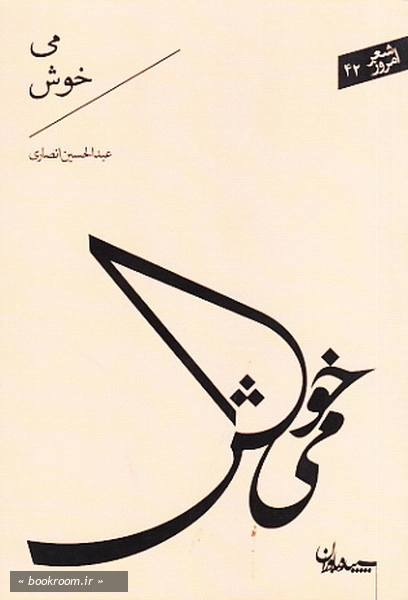 شعر
امروز ۴۲
می
خوش
عبدالحسین انصاری
می
خوش
سپیده‌باوران
« bookroom.ir »